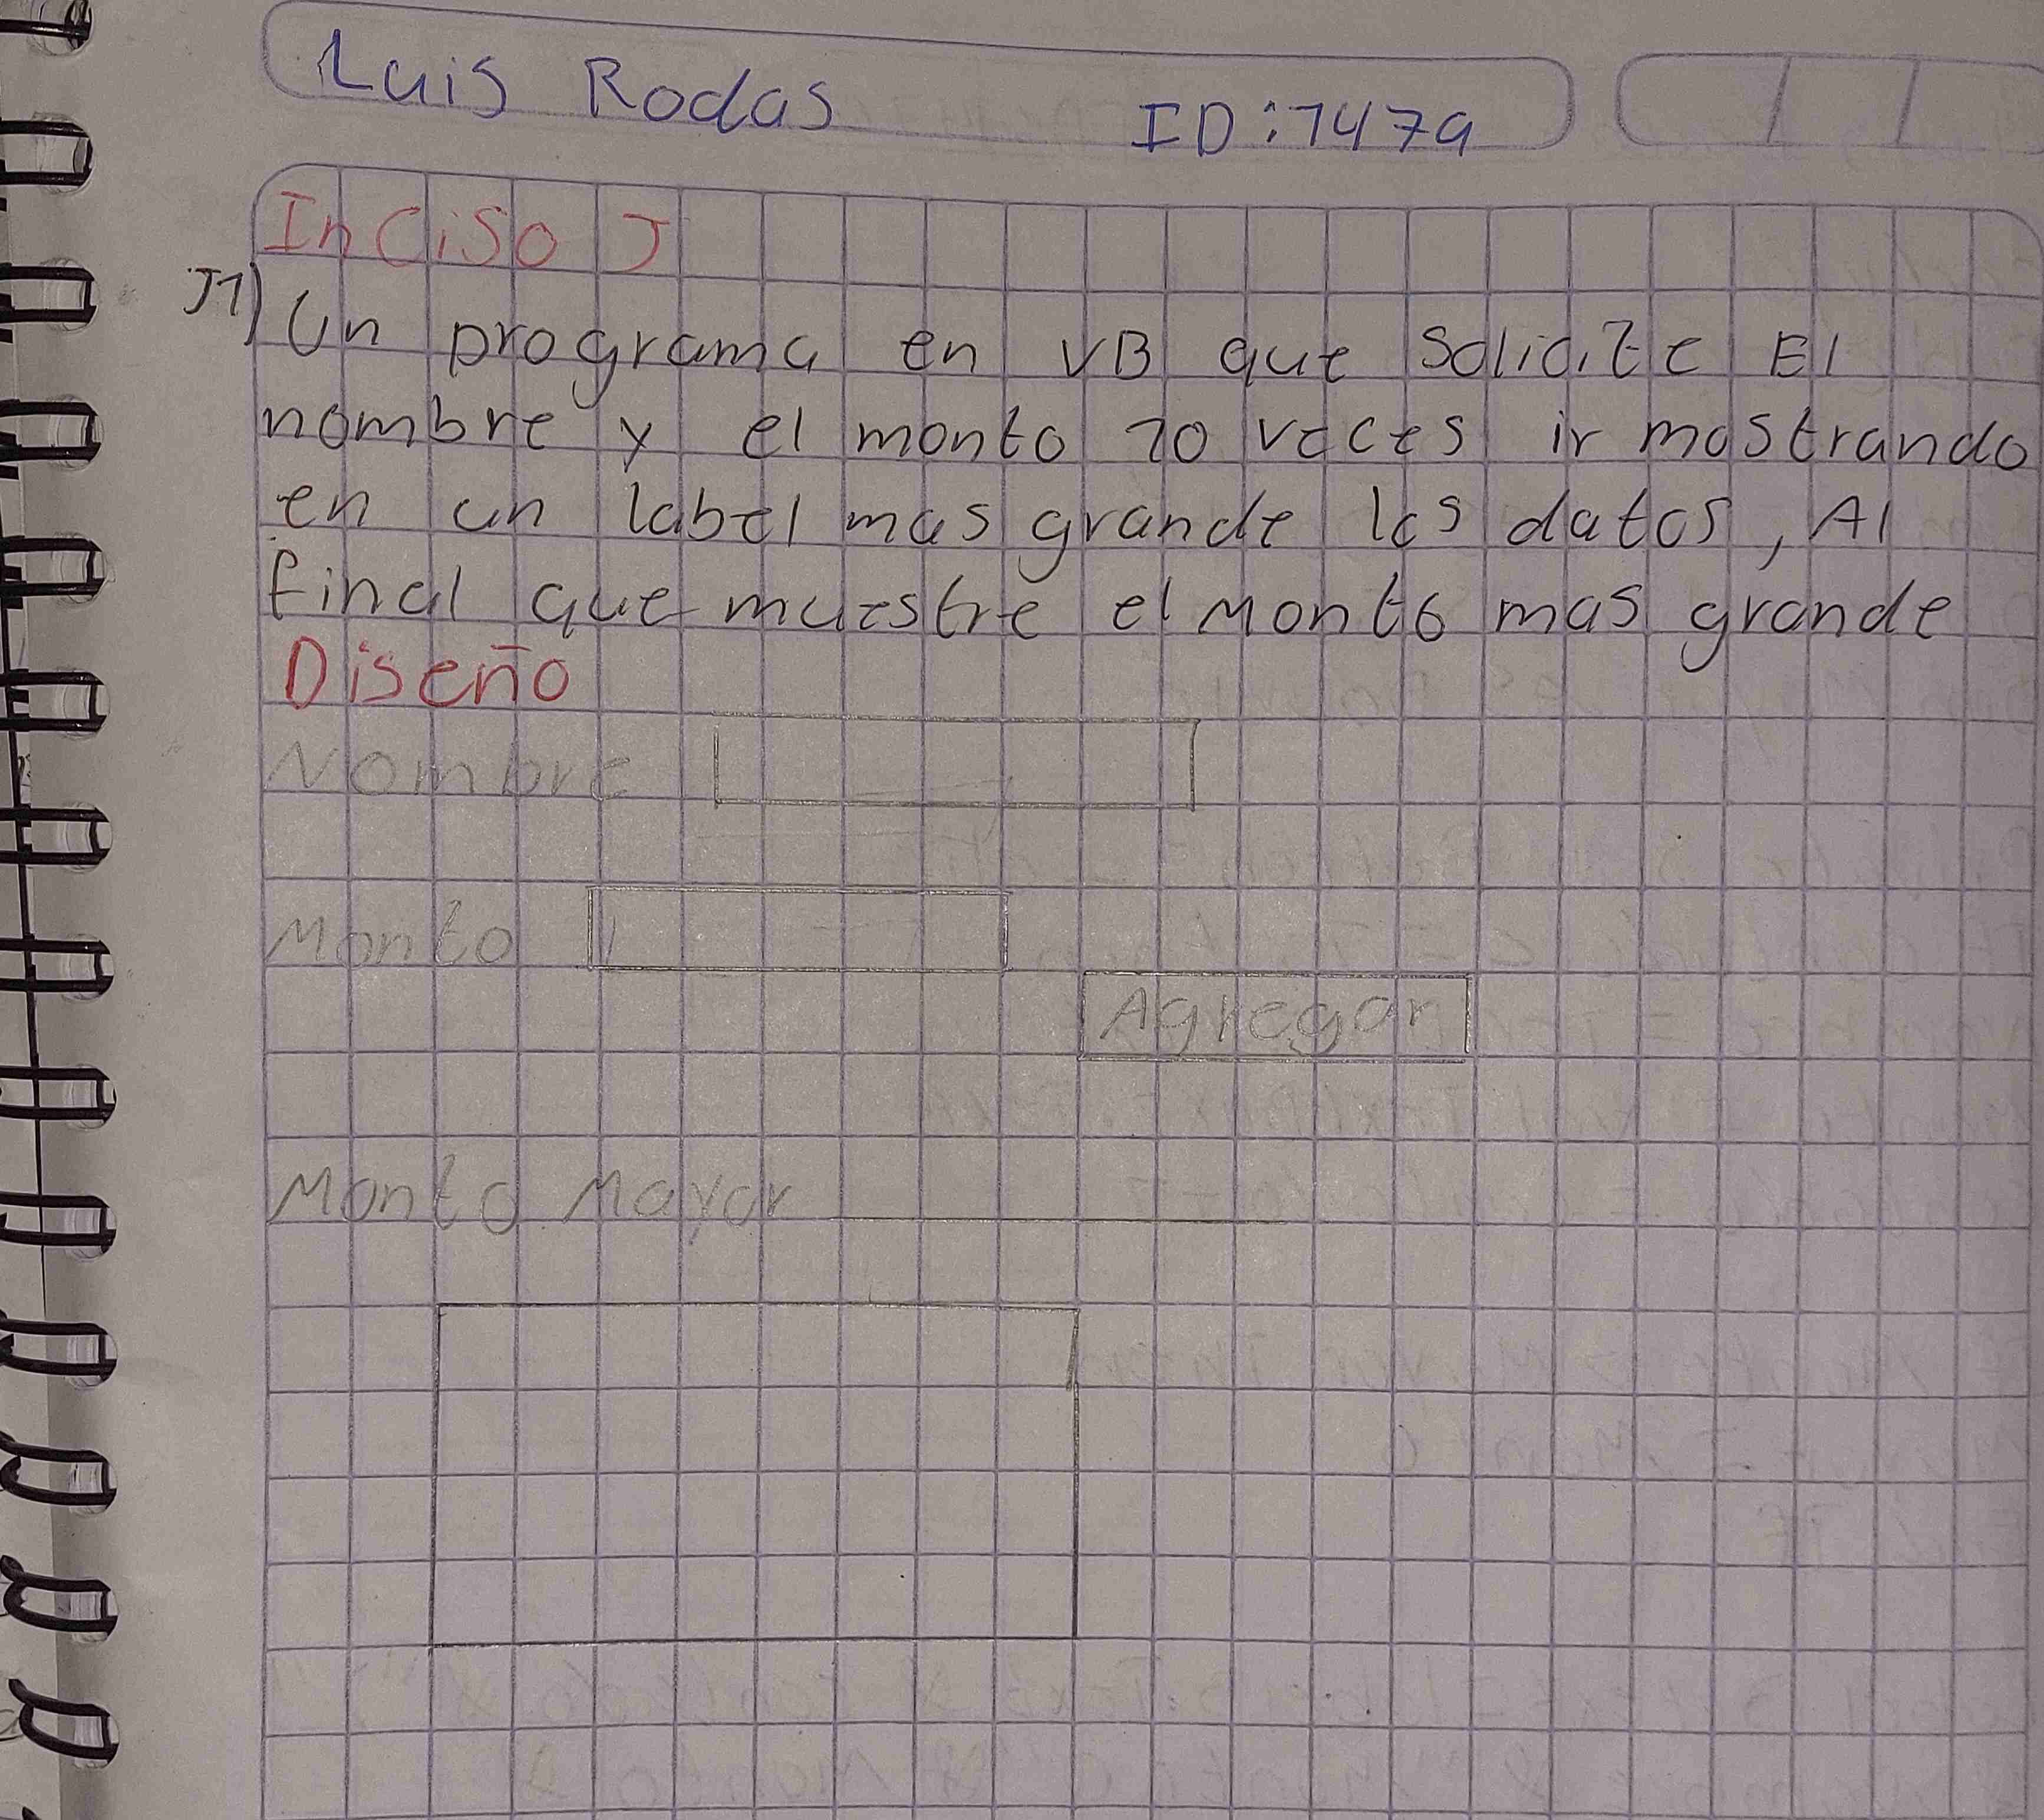 Luis Rodas ID:1479
Inciso J
J1) Un programa en VB que solicite El
nombre y el monto 10 veces ir mostrando
en un label mas grande los datos, Al
final que muestre el Monto mas grande
Diseño
Nombre
Monto
Agregar
Monto Mayor